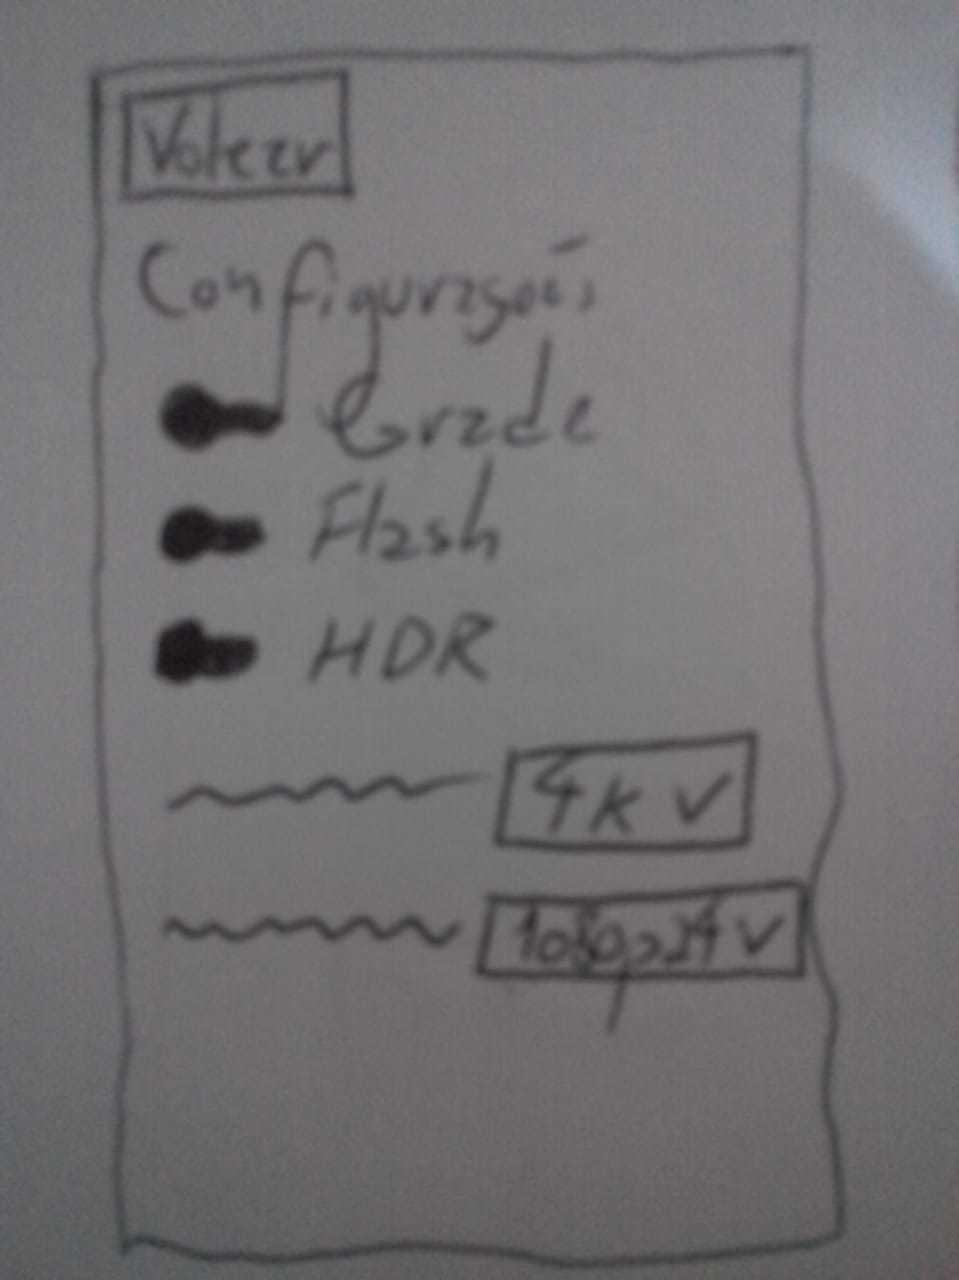 Voltar
Configurações
Grade
Flash
HDR
4K
1080p24